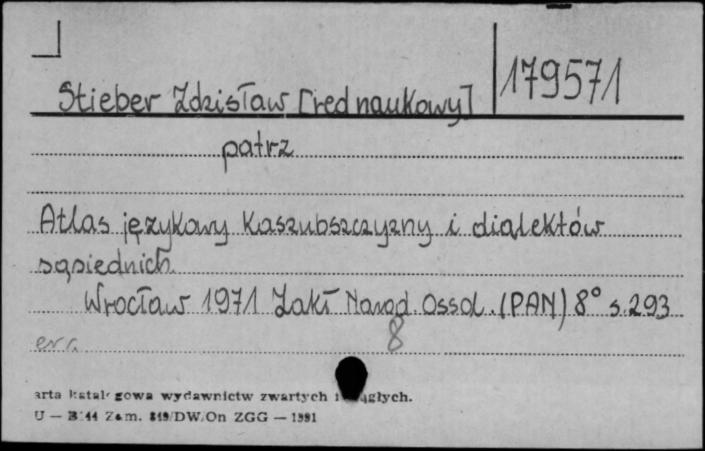 179571
Stieber Zdzisław [red naukowy]
patrz
Atlas językowy Kaszubszczyzny i dialektów
sąsiednich.
Wrocław 1971 Zakł Narod. Ossol. (PAN) 8° s. 293
err. 8
arta katal gowa wydawnictw zwartych i ągłych.
U — 3144 Zam. 819/DW/On ZGG — 1991